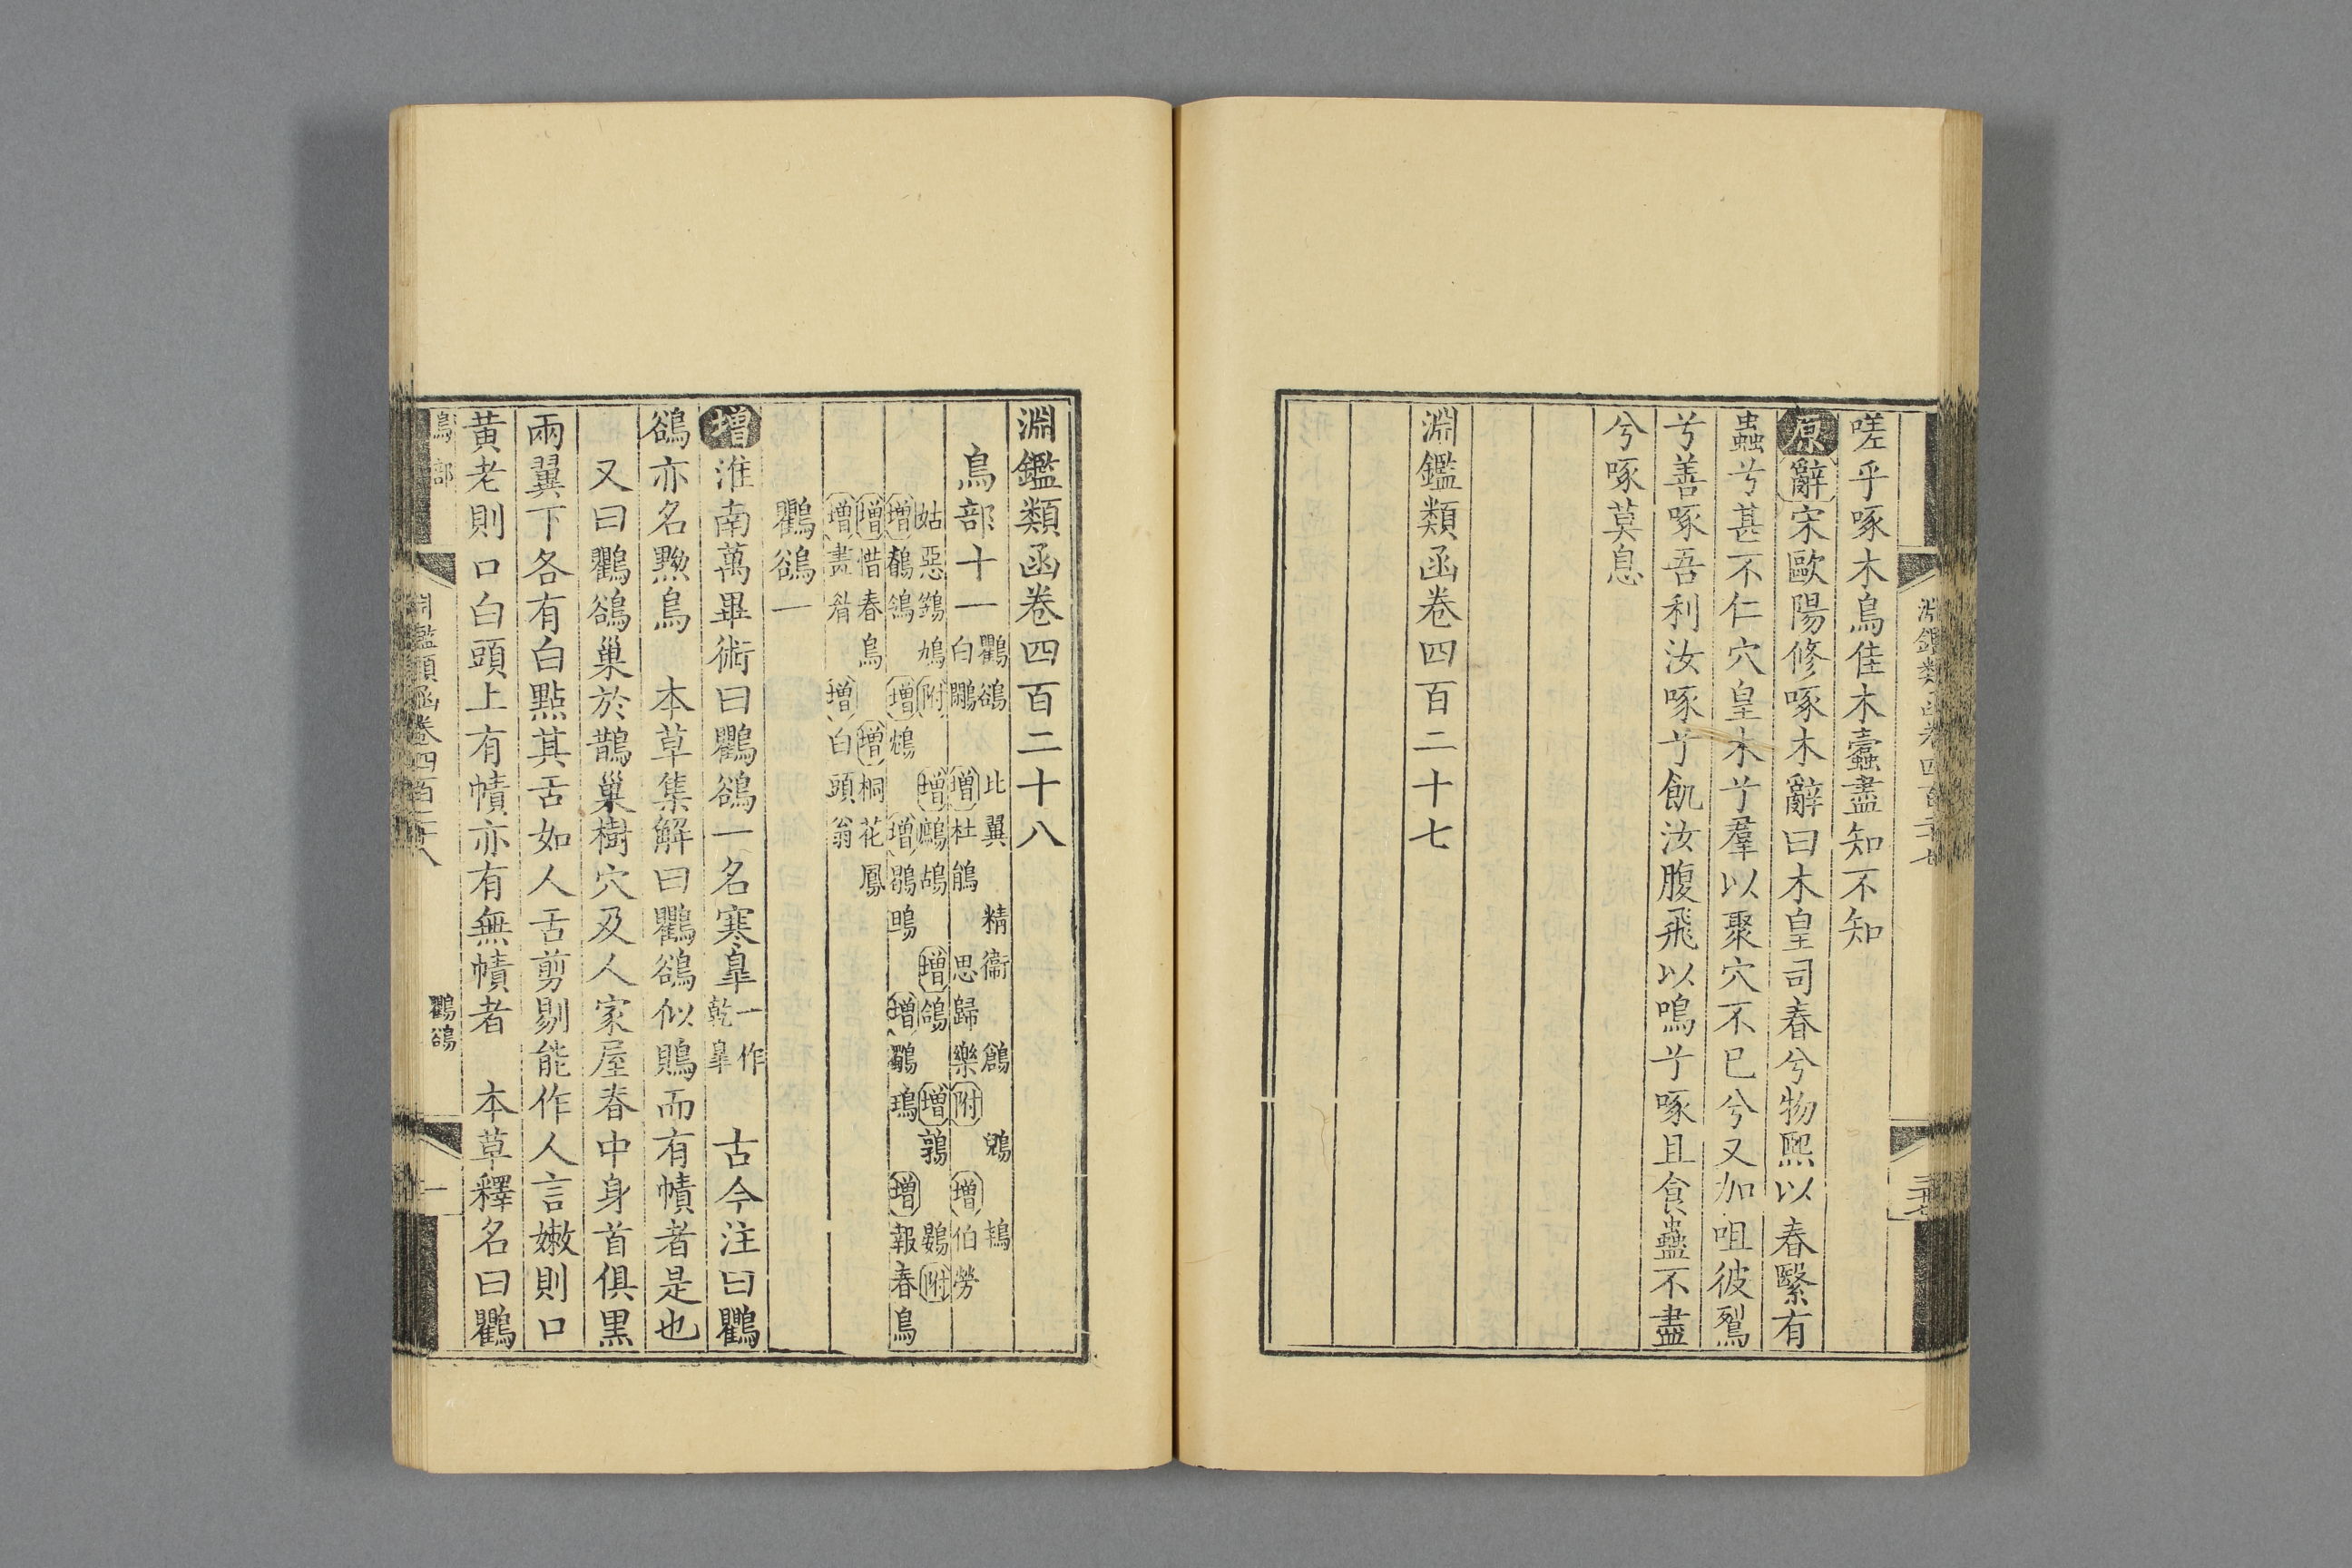 嗟乎啄木鳥佳木蠹盡知不知
原辭宋歐陽修啄木辭曰木皇司春兮物熙以春繄有
蟲兮甚不仁穴皇木兮羣以聚穴不已兮又加咀彼鴷
兮善啄吾利汝啄兮飢汝腹飛以鳴兮啄且食蠱不盡
兮啄莫息
淵鑑類函卷四百二十七
淵鑑類函卷四百二十七
淵鑑類函卷四百二十八
鳥部十一
鸜鵒 比翼 精衞 鶬 鵶 鶇
白鷴 增杜鵑 思歸樂 附 增伯勞
姑惡 鷄鳩 附 增鷓鴣 增鴿 增鶉 鷃 附
增鶺鴒 增鴆 增鶻鳴 增鸀瑦 增報春鳥
增惜春鳥 增桐花鳳
增畫眉 增白頭翁
鸜鵒一
增淮南萬畢術曰鸜鵒一名寒皐一作乾皐 古今注曰鸜
鵒亦名鷠鳥 本草集解曰鸜鵒似鵙而有幘者是也
又曰鸜鵒巢於鵲巢樹穴及人家屋脊中身首俱黑
兩翼下各有白點其舌如人舌剪剔能作人言嫩則口
黃老則口白頭上有幘亦有無幘者 本草釋名曰鸜
鳥部 淵鑑類函卷四百二十八 鸜鵒 一